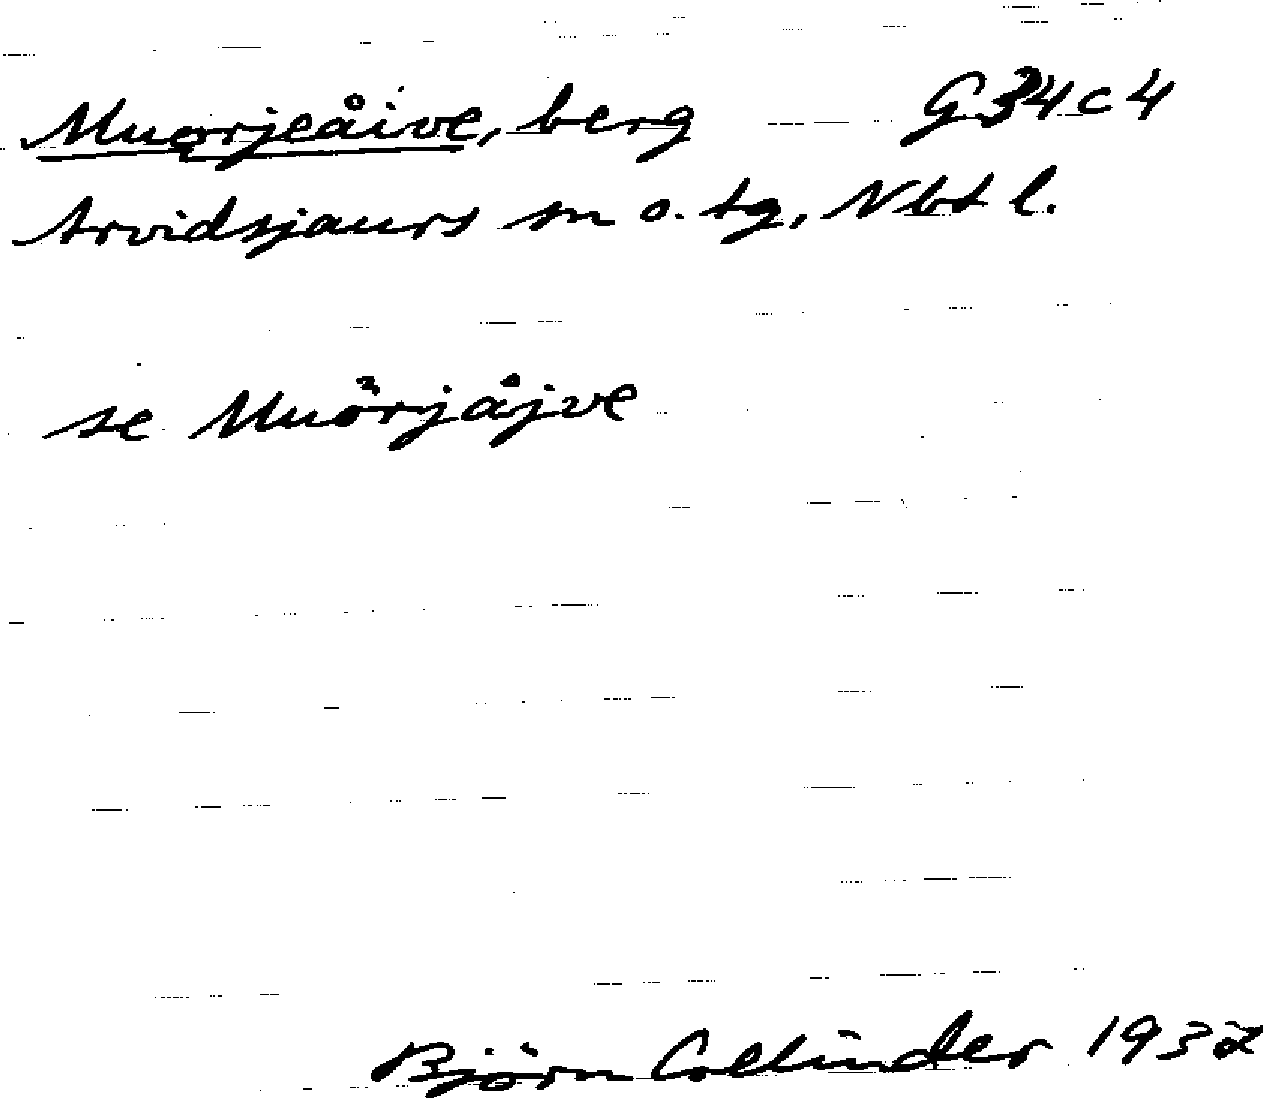 Muorjeåive, berg G34c4
Arvidsjaurs sn o. tg, Nbt l.
se Muörjåjve
Björn Collinder 1932